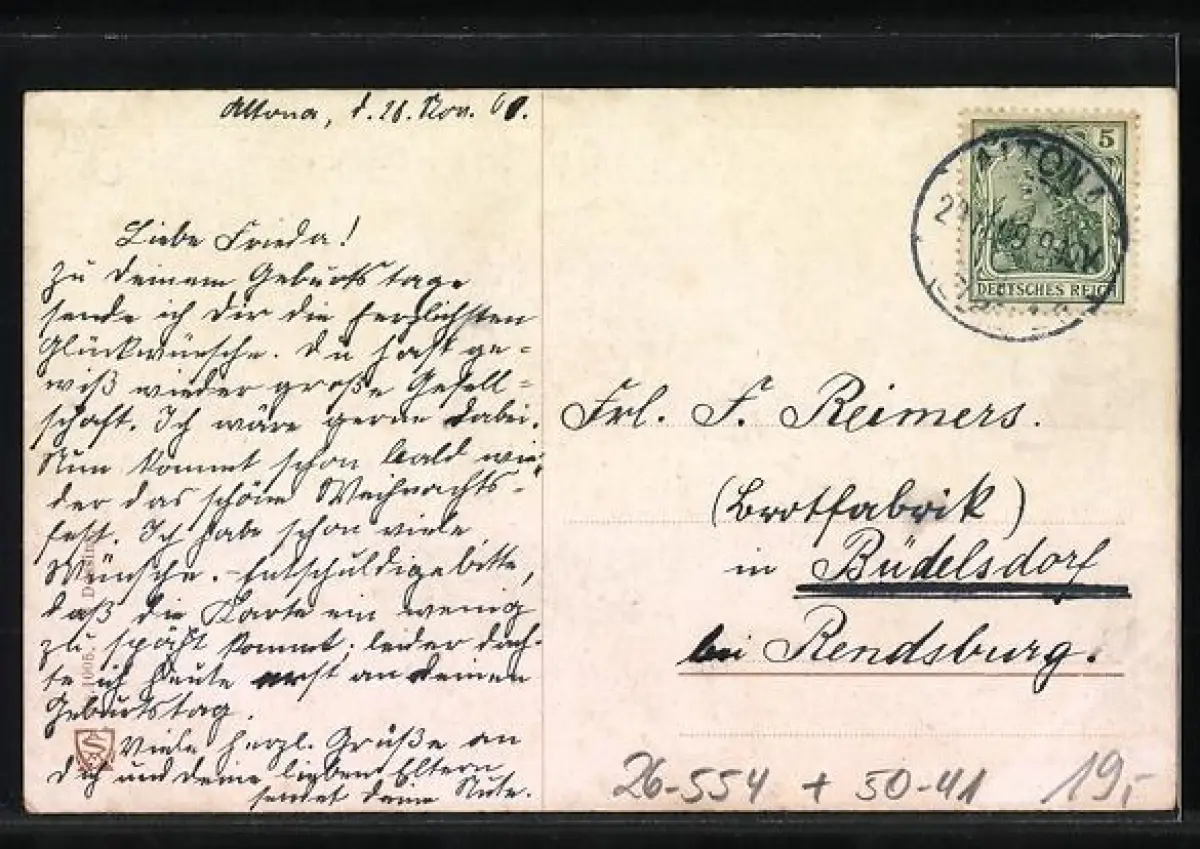 Altona, d. 28. Nov.
Liebe Frieda!
Zu deinem Geburtstage
sende ich dir die herzlichsten
Glückwünsche. Du hast ge=
wiß wieder große Gesell=
schaft. Ich wäre gerne dabei.
Nun kommt schon bald wie=
der das schöne Weihnachts=
fest. Ich habe schon viele
Wünsche. – Entschuldige bitte,
daß die Karte ein wenig
zu spät kommt; leider dach=
te ich heute erst an deinen
Geburtstag.
Viele herzl. Grüße an
dich und deine lieben Eltern
sendet deine
5
ALTONA
9-10N
DEUTSCHES REICH
Frl. F. Reimers.
(Brotfabrik)
in Büdelsdorf
bei Rendsburg.
26-554 + 50-41 19,-